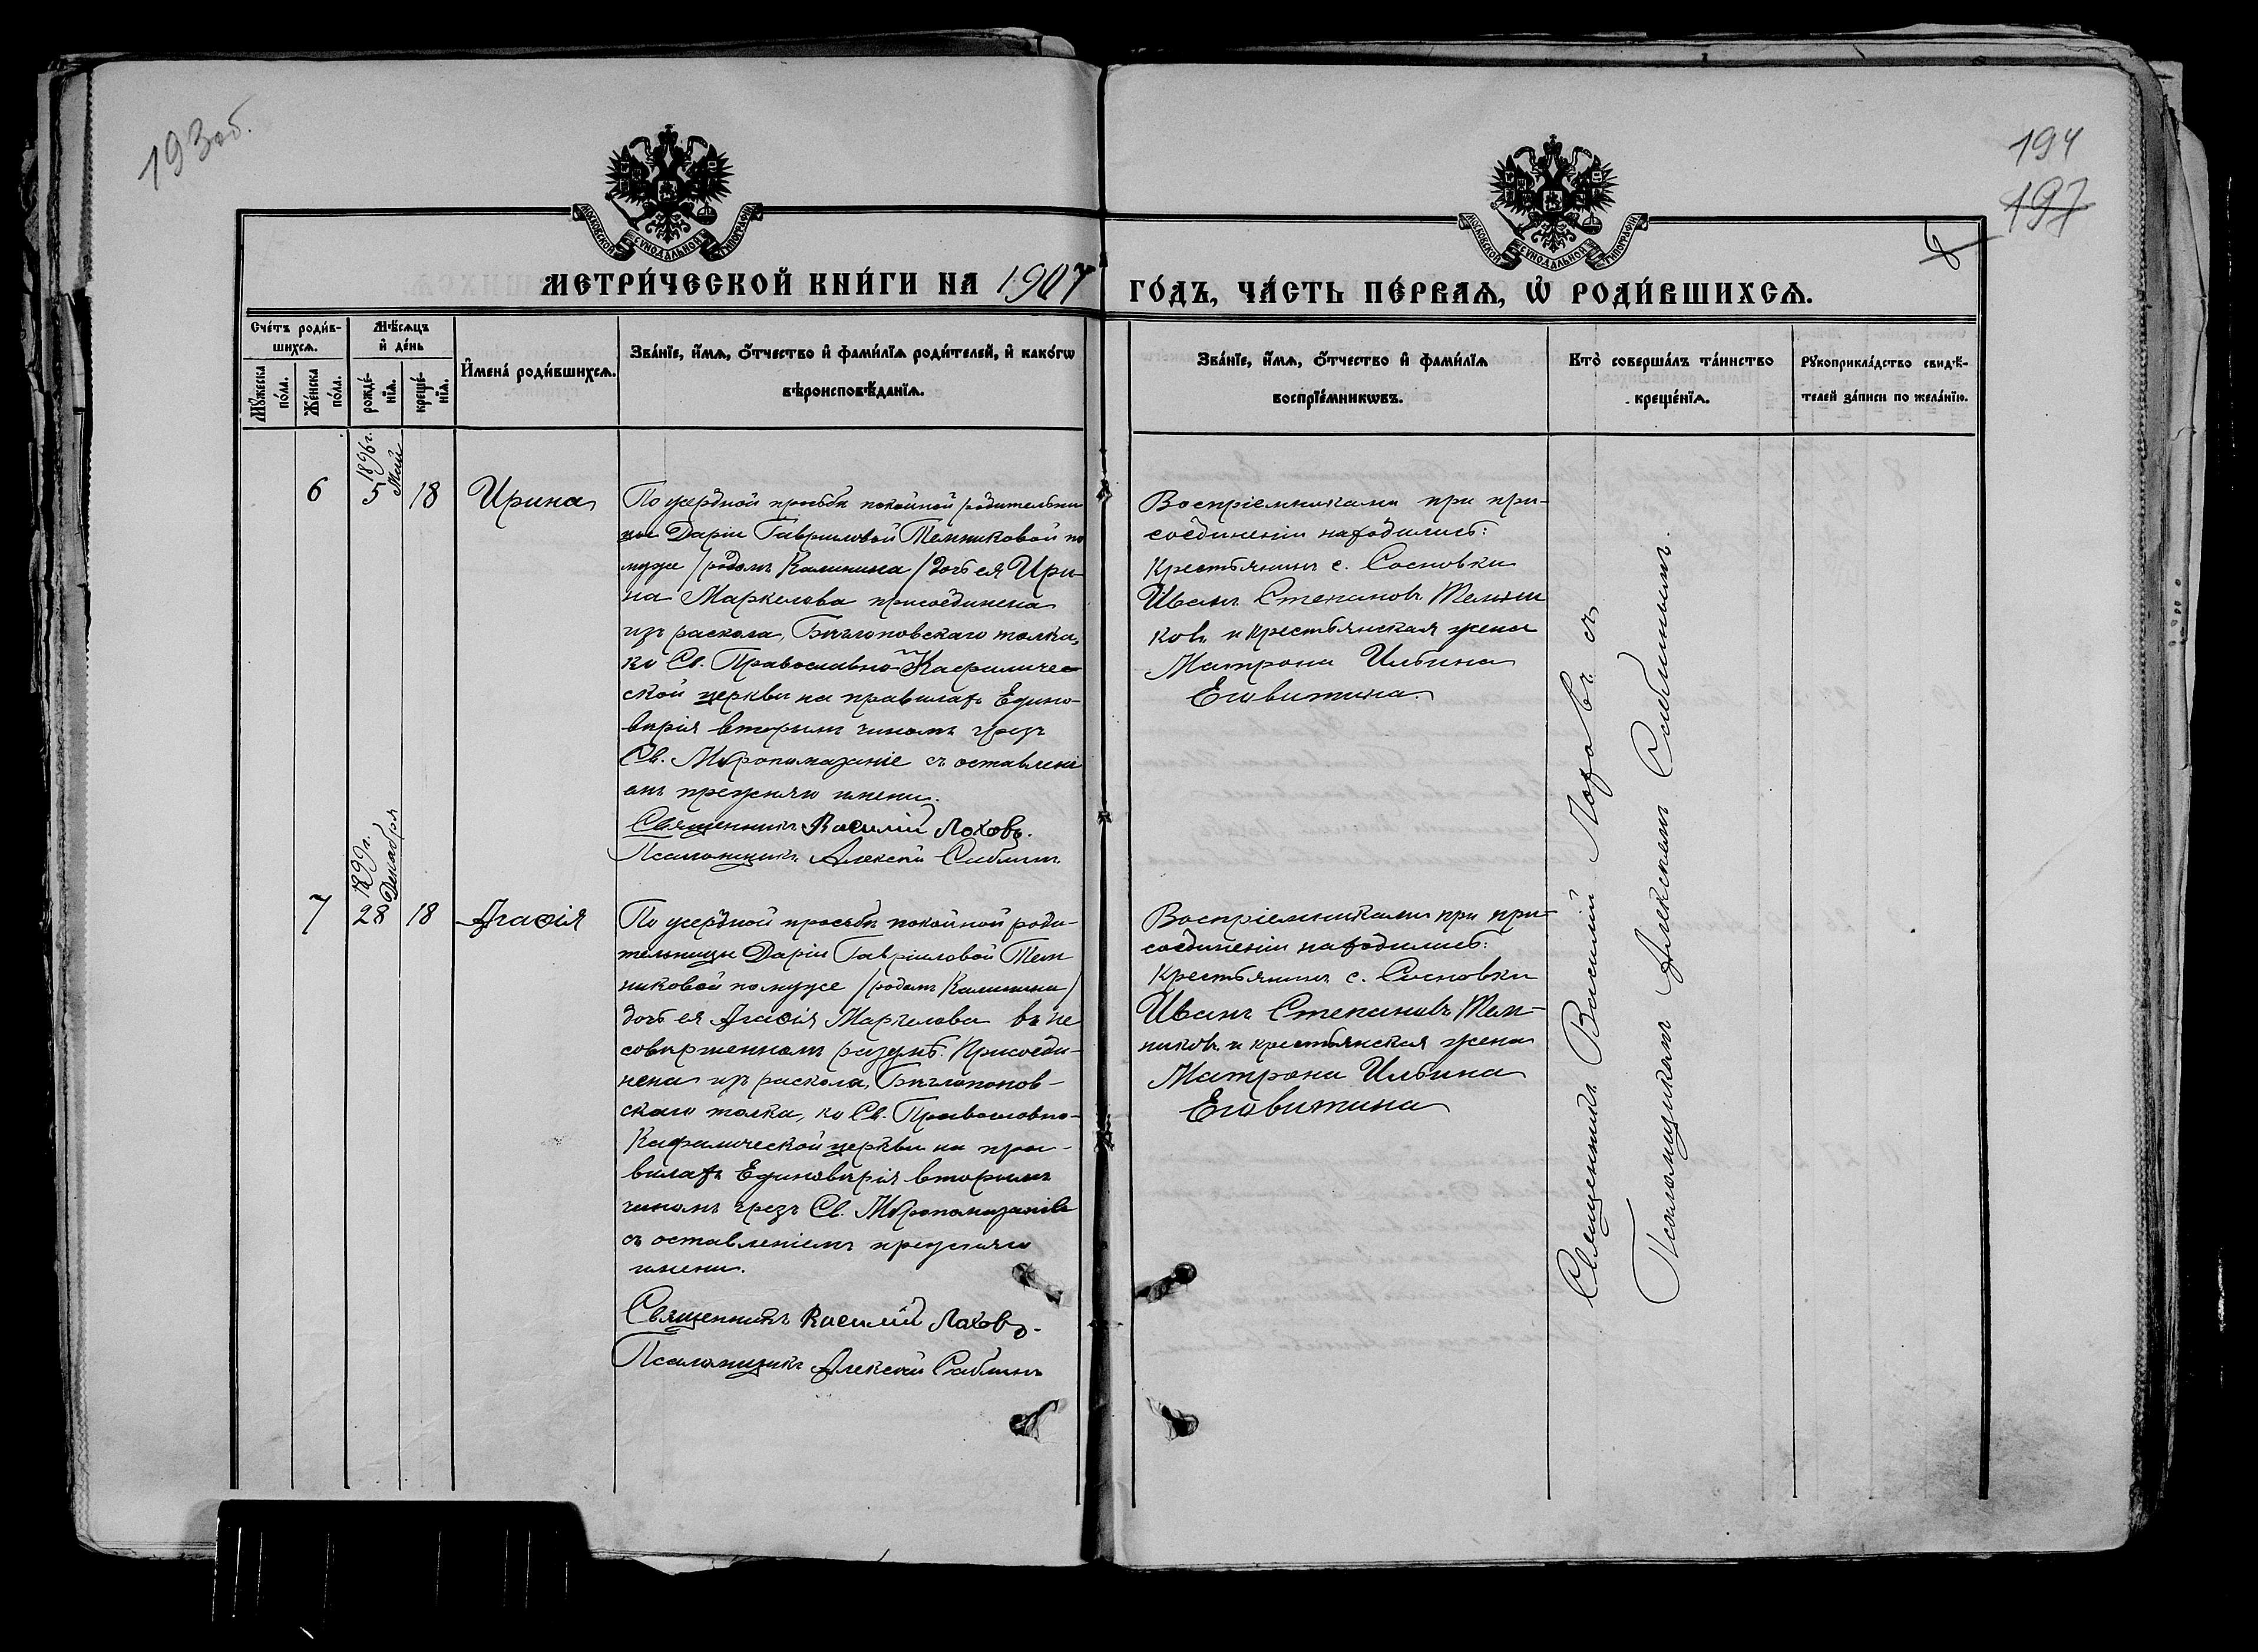 193 об.
194
197
6
МОСКОВСКОЙ СѴНОДАЛЬНОЙ ТИПОГРАФІИ
МОСКОВСКОЙ СѴНОДАЛЬНОЙ ТИПОГРАФІИ
МЕТРИ́ЧЕСКОЙ КНИ́ГИ НА 1907 ГО́ДЪ, ЧА́СТЬ ПЕ́РВАѦ, Ѽ РОДИ́ВШИХСѦ.
Сче́тъ роди́в-
шихсѧ.
Мꙋ́жеска
по́ла.
Же́нска
по́ла.
Мѣ́сѧцъ
и҆ де́нь
рожде́-
нїѧ.
креще́-
нїѧ.
И҆мена̀ роди́вшихсѧ.
Зва́нїе, и҆́мѧ, ѻ҆́тчество и҆ фами́лїѧ роди́телей, и҆ како́гѡ
вѣроисповѣ́данїѧ.
Зва́нїе, и҆́мѧ, ѻ҆́тчество и҆ фами́лїѧ
воспрїе́мникѡвъ.
Кто̀ соверша́лъ та́инство
креще́нїѧ.
Рꙋкоприкла́дство свидѣ́-
телей за́писи по жела́нїю.
6
1896 г.
5 Май
18
Ирина
По усердной просьбѣ покойной родительни
цы Даріи Гавриловой Темниковой по
мужѣ /родомъ Калинина/ дочь ея Ири-
на Маркелова присоединена
изъ раскола, Бѣглоповскаго толка,
ко Св. Православно-Каѳоличес-
ской церкви на правилахъ Едино-
вѣрія вторымъ чиномъ чрезъ
Св. Мѵропомазаніе съ оставлені
емъ прежняго имени.
Священникъ Василій Лоховъ.
Псаломщикъ Алексѣй Саблинъ
Воспріемниками при при-
соединеніи находились:
Крестьянинъ с. Сосновки
Иванъ Степановъ Темни
ковъ и крестьянская жена
Матрона Ильина
Еговитина.
7
1899 г.
28 Декабря
18
Агаѳія
По усердной просьбѣ покойной роди-
тельницы Даріи Гавріиловой Тем
никовой по мужѣ /родомъ Калинина/
дочь ея Агаѳія Маркелова въ не
совершенномъ разумѣ. Присоеди-
нена изъ раскола, Бѣглопопов-
скаго толка, ко Св. Православно-
Каѳолической церкви на пра-
вилахъ Единовѣрія вторымъ
чиномъ чрезъ Св. Мѵропомазаніе
съ оставленіемъ прежняго
имени.
Священникъ Василій Лоховъ.
Псаломщикъ Алексѣй Саблинъ
Воспріемниками при при-
соединеніи находились:
Крестьянинъ с. Сосновки
Иванъ Степановъ Тем-
никовъ и крестьянская жена
Матрона Ильина
Еговитина
Священникъ Василій Лоховъ съ
Псаломщикомъ Алексѣемъ Саблинымъ.